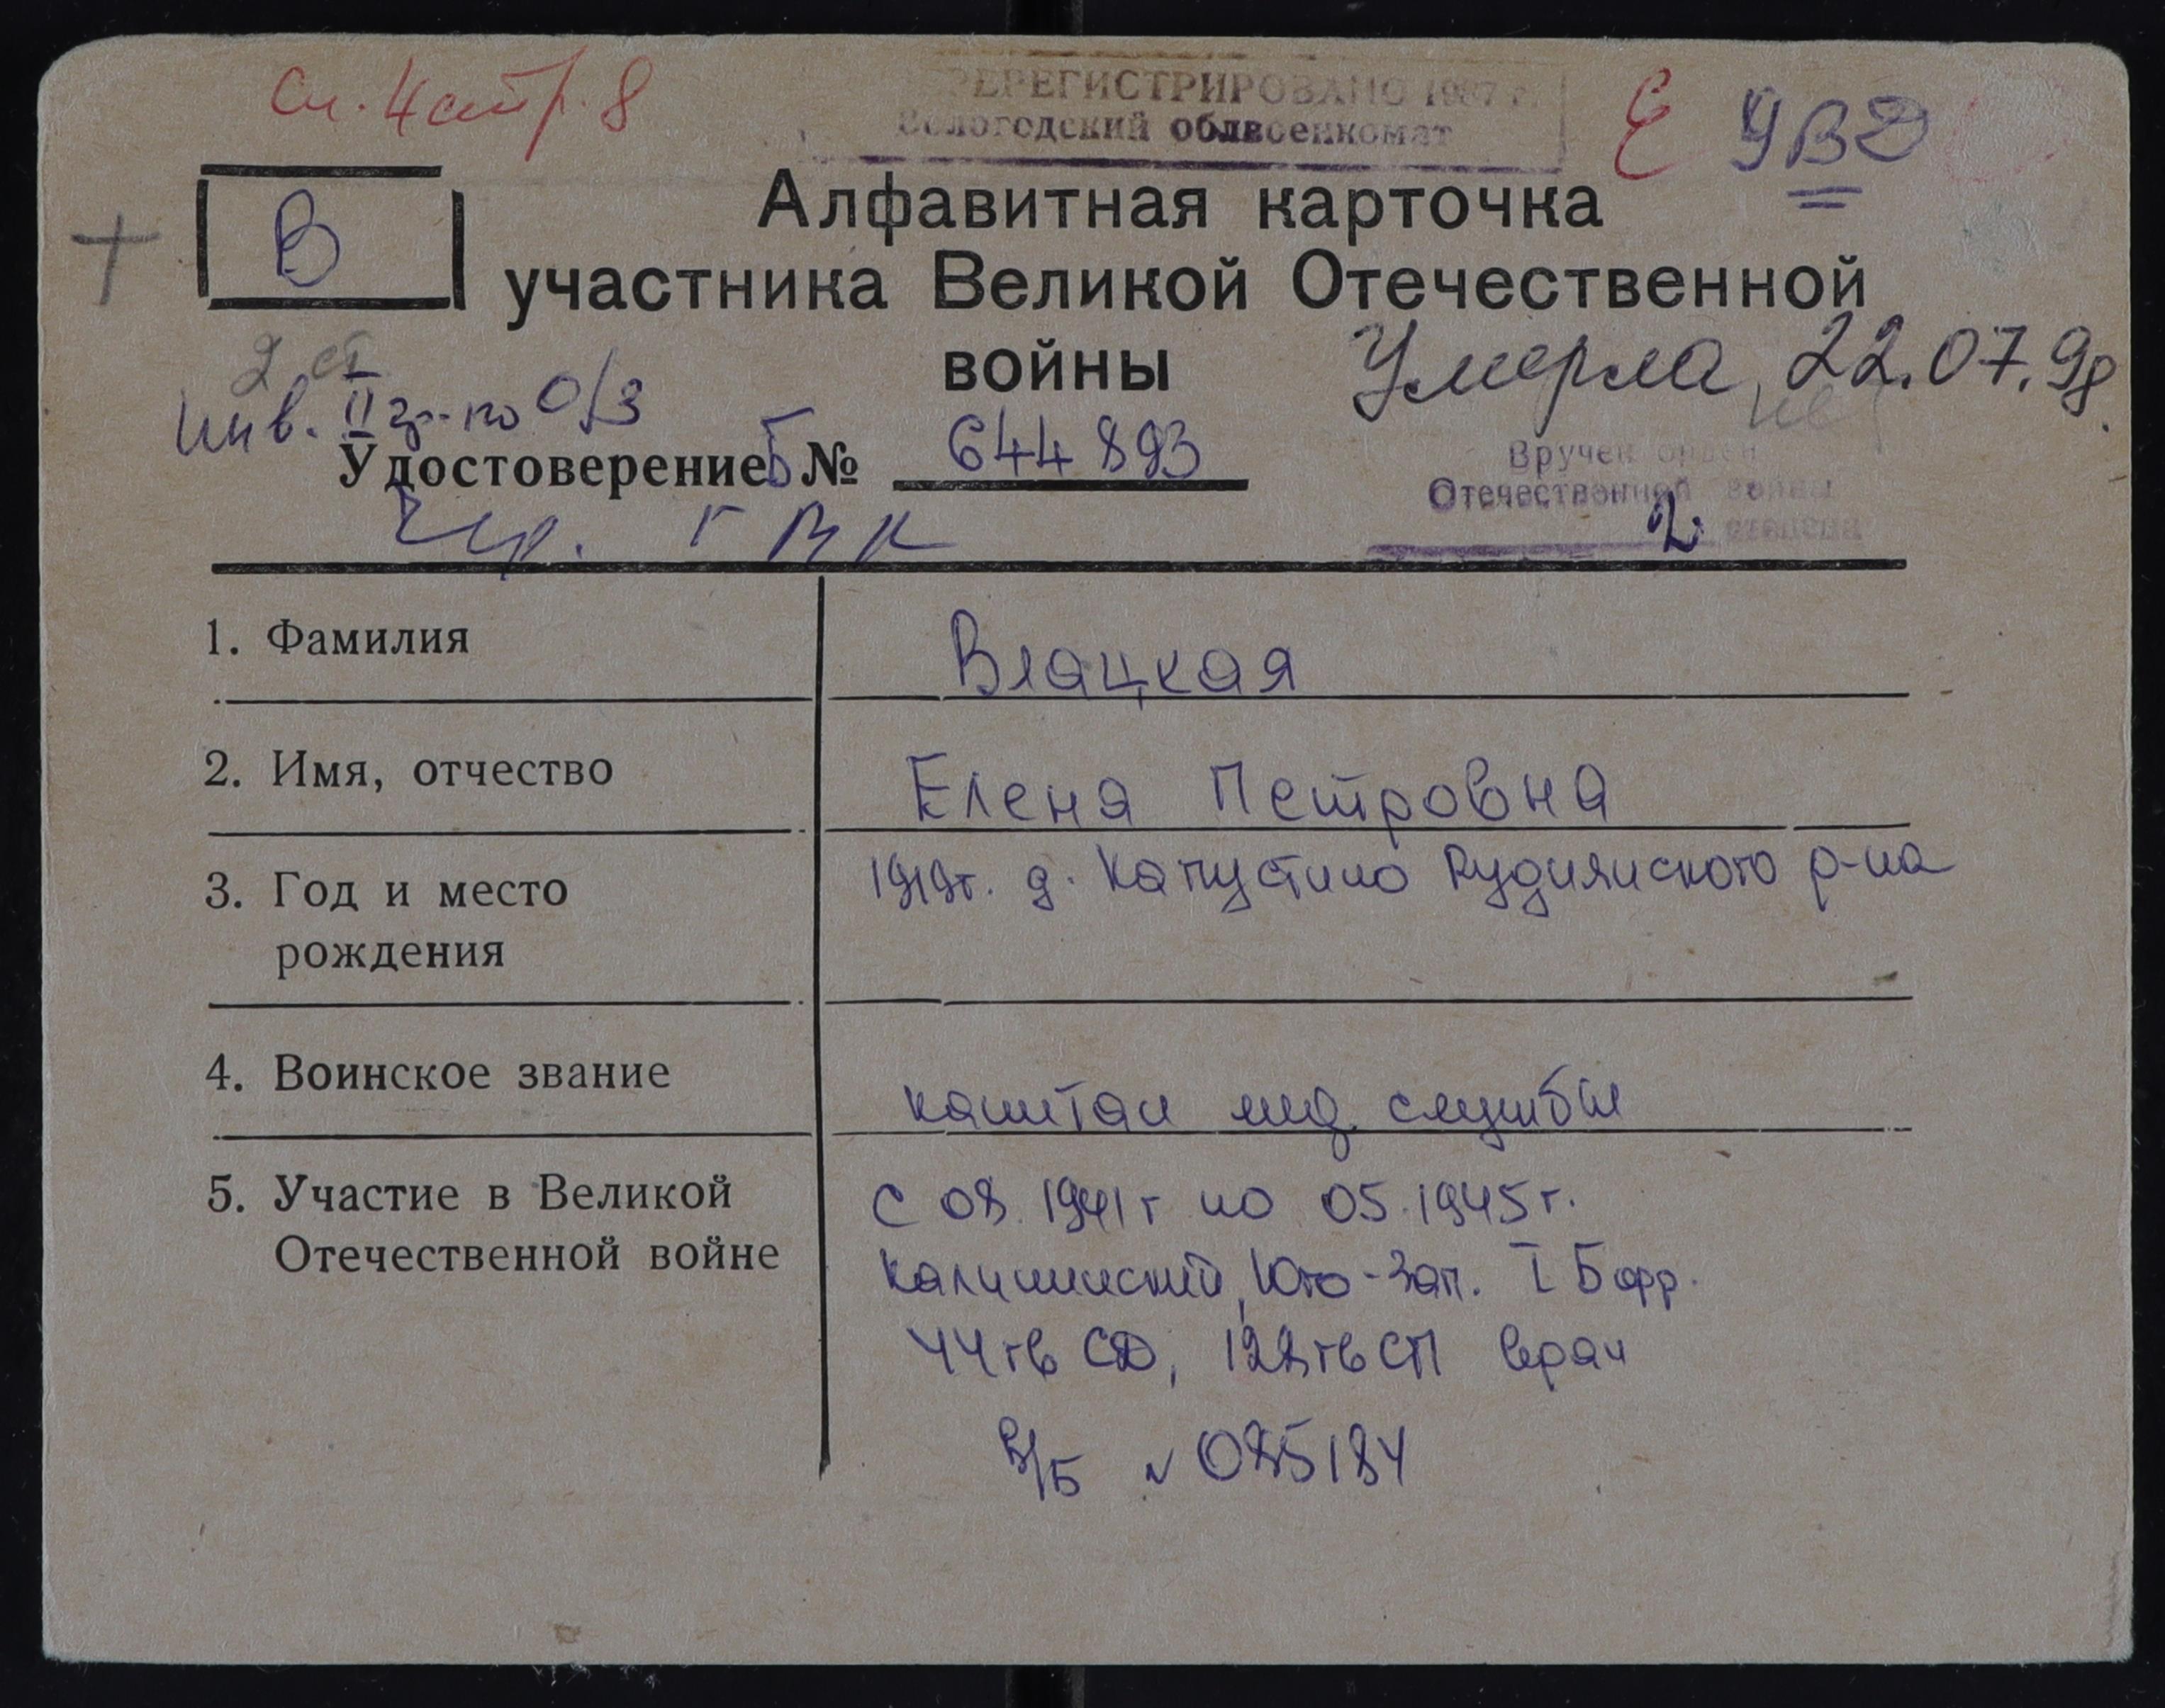 сп. 4 стр. 8
ПЕРЕРЕГИСТРИРОВАНО 1987 г.
Вологодский облвоенкомат
Е УВД
В
Алфавитная карточка
участника Великой Отечественной
войны
Умерла 22.07.98
2 ст
инв. II гр. по О/З
Удостоверение Б № 644893
Вручен орден
Отечественной войны
2 степени
Чер. ГВК
1. Фамилия Влацкая
2. Имя, отчество Елена Петровна
3. Год и место 1919г. д. Капустино Руднянского р-на
рождения
4. Воинское звание капитан мед. службы
5. Участие в Великой с 08.1941г по 05.1945г.
Отечественной войне Калининский, Юго-Зап. I Б фр.
44 гв СД, 122 гв СП врач
В/Б № 085184